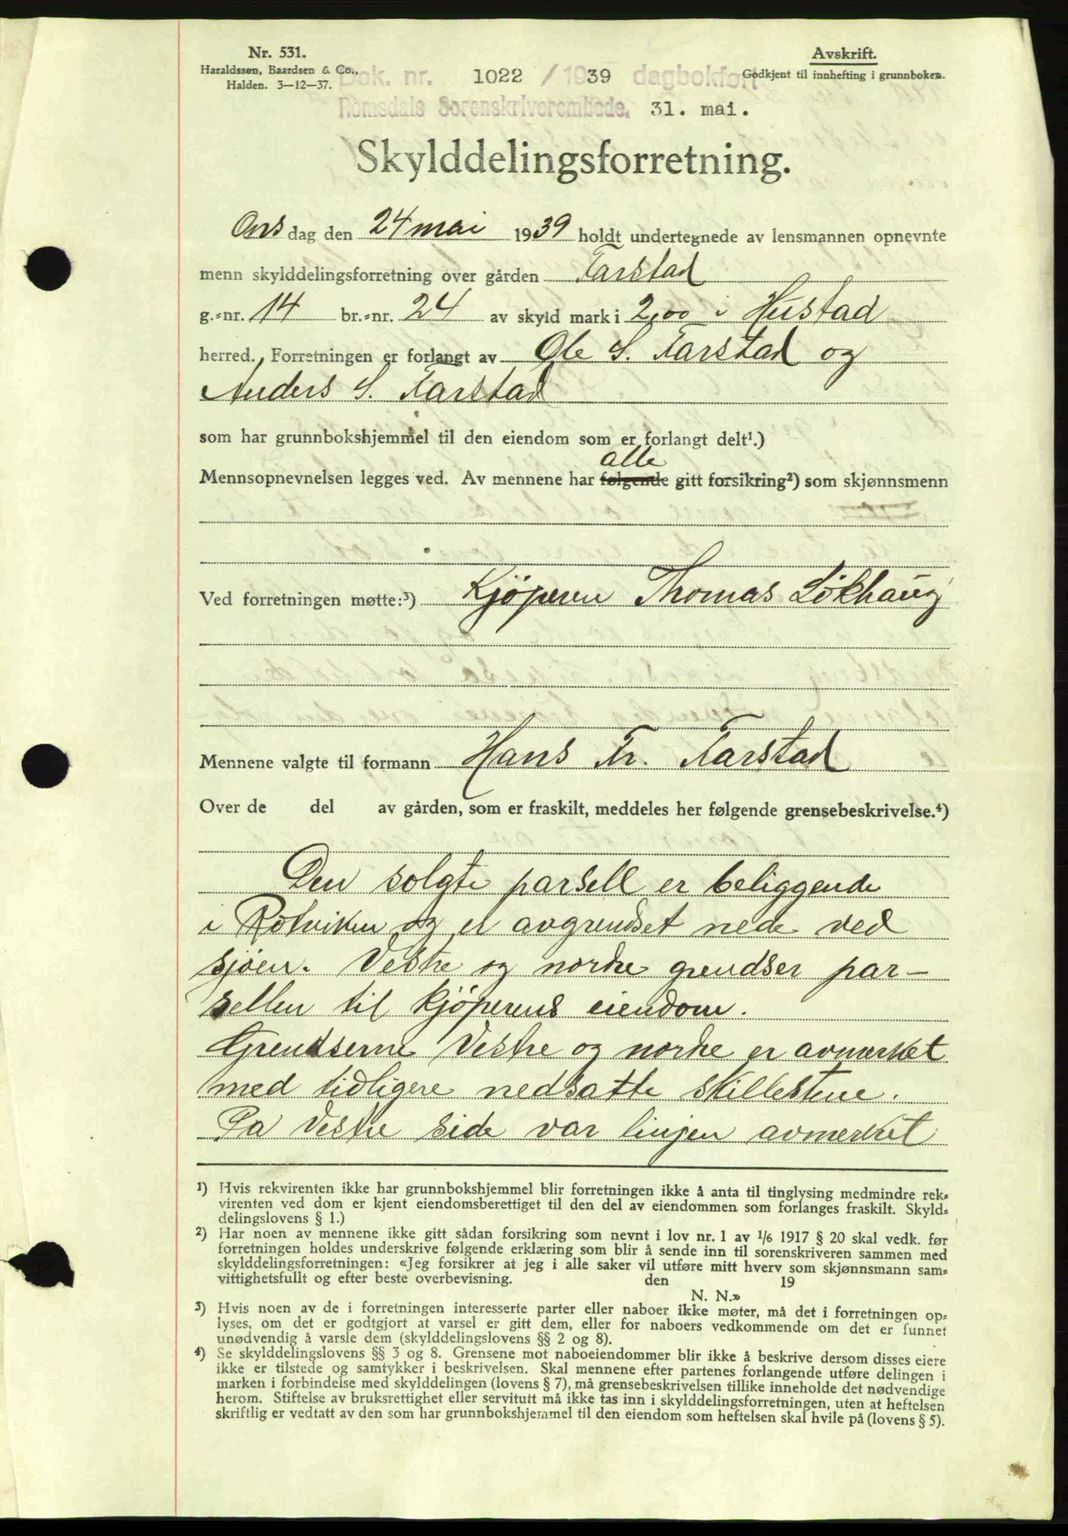 Nr. 531.
Haraldssøn, Baardsen & Co.,
Halden. 3—12—37.
Avskrift.
Godkjent til innhefting i grunnboken.
Dok. nr. 1022 / 1939 dagbokført
Romsdals Sorenskriverembede, 31. mai.
Skylddelingsforretning.
Onsdag den 24 mai 1939 holdt undertegnede av lensmannen opnevnte
menn skylddelingsforretning over gården Farstad
g.-nr. 14 br.-nr. 24 av skyld mark i 2,00 i Hustad
herred. Forretningen er forlangt av Ole S. Farstad og
Anders S. Farstad
som har grunnbokshjemmel til den eiendom som er forlangt delt¹.)
alle
Mennsopnevnelsen legges ved. Av mennene har følgende gitt forsikring²) som skjønnsmenn
Ved forretningen møtte:³) Kjöperen Thomas Løkhaug
Mennene valgte til formann Hans Fr. Farstad
Over de del av gården, som er fraskilt, meddeles her følgende grensebeskrivelse.⁴)
Den solgte parsell er beliggende
i Rotviken og el avgrendset nede ved
sjöen. Vestre og nordre grendser par-
sellen til kjöperens eiendom.
Grendserne Vestre og nordre er avmerket
med tidligere nedsatte skillestene.
Pa Vestre side var linjen avmerket
¹) Hvis rekvirenten ikke har grunnbokshjemmel blir forretningen ikke å anta til tinglysing medmindre rek-
virenten ved dom er kjent eiendomsberettiget til den del av eiendommen som forlanges fraskilt. Skyld-
delingslovens § 1.)
²) Har noen av mennene ikke gitt sådan forsikring som nevnt i lov nr. 1 av 1/6 1917 § 20 skal vedk. før
forretningen holdes underskrive følgende erklæring som blir å sende inn til sorenskriveren sammen med
skylddelingsforretningen: «Jeg forsikrer at jeg i alle saker vil utføre mitt hverv som skjønnsmann sam-
vittighetsfullt og efter beste overbevisning. den 19
N. N.»
³) Hvis noen av de i forretningen interesserte parter eller naboer ikke møter, må det i forretningen op-
lyses, om det er godtgjort at varsel er gitt dem, eller for naboers vedkommende om det er funnet
unødvendig å varsle dem (skylddelingslovens §§ 2 og 8).
⁴) Se skylddelingslovens §§ 3 og 8. Grensene mot naboeiendommer blir ikke å beskrive dersom disses eiere
ikke er tilstede og samtykker i beskrivelsen. Skal mennene efter partenes forlangende utføre delingen i
marken i forbindelse med skylddelingen (lovens § 7), må grensebeskrivelsen tillike inneholde det nødvendige
herom. Stiftelse av bruksrettighet eller servitutt må ikke tas inn i skylddelingsforretningen, uten at heftelsen
skriftlig er vedtatt av den som har grunnbokshjemmel til den eiendom som heftelsen skal hvile på (lovens § 5).